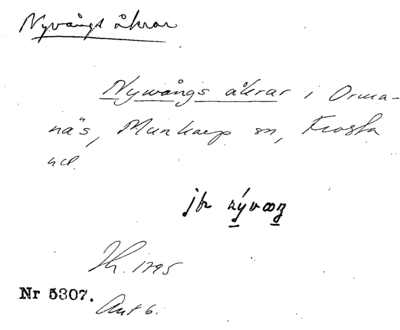 Nyvångs åkrar
Nywångs åkrar i Orma-
näs, Munkarp sn, Frosta
hd.
jfr nývæŋ
Sk. 1795
Nr 5307.
Akt 6.